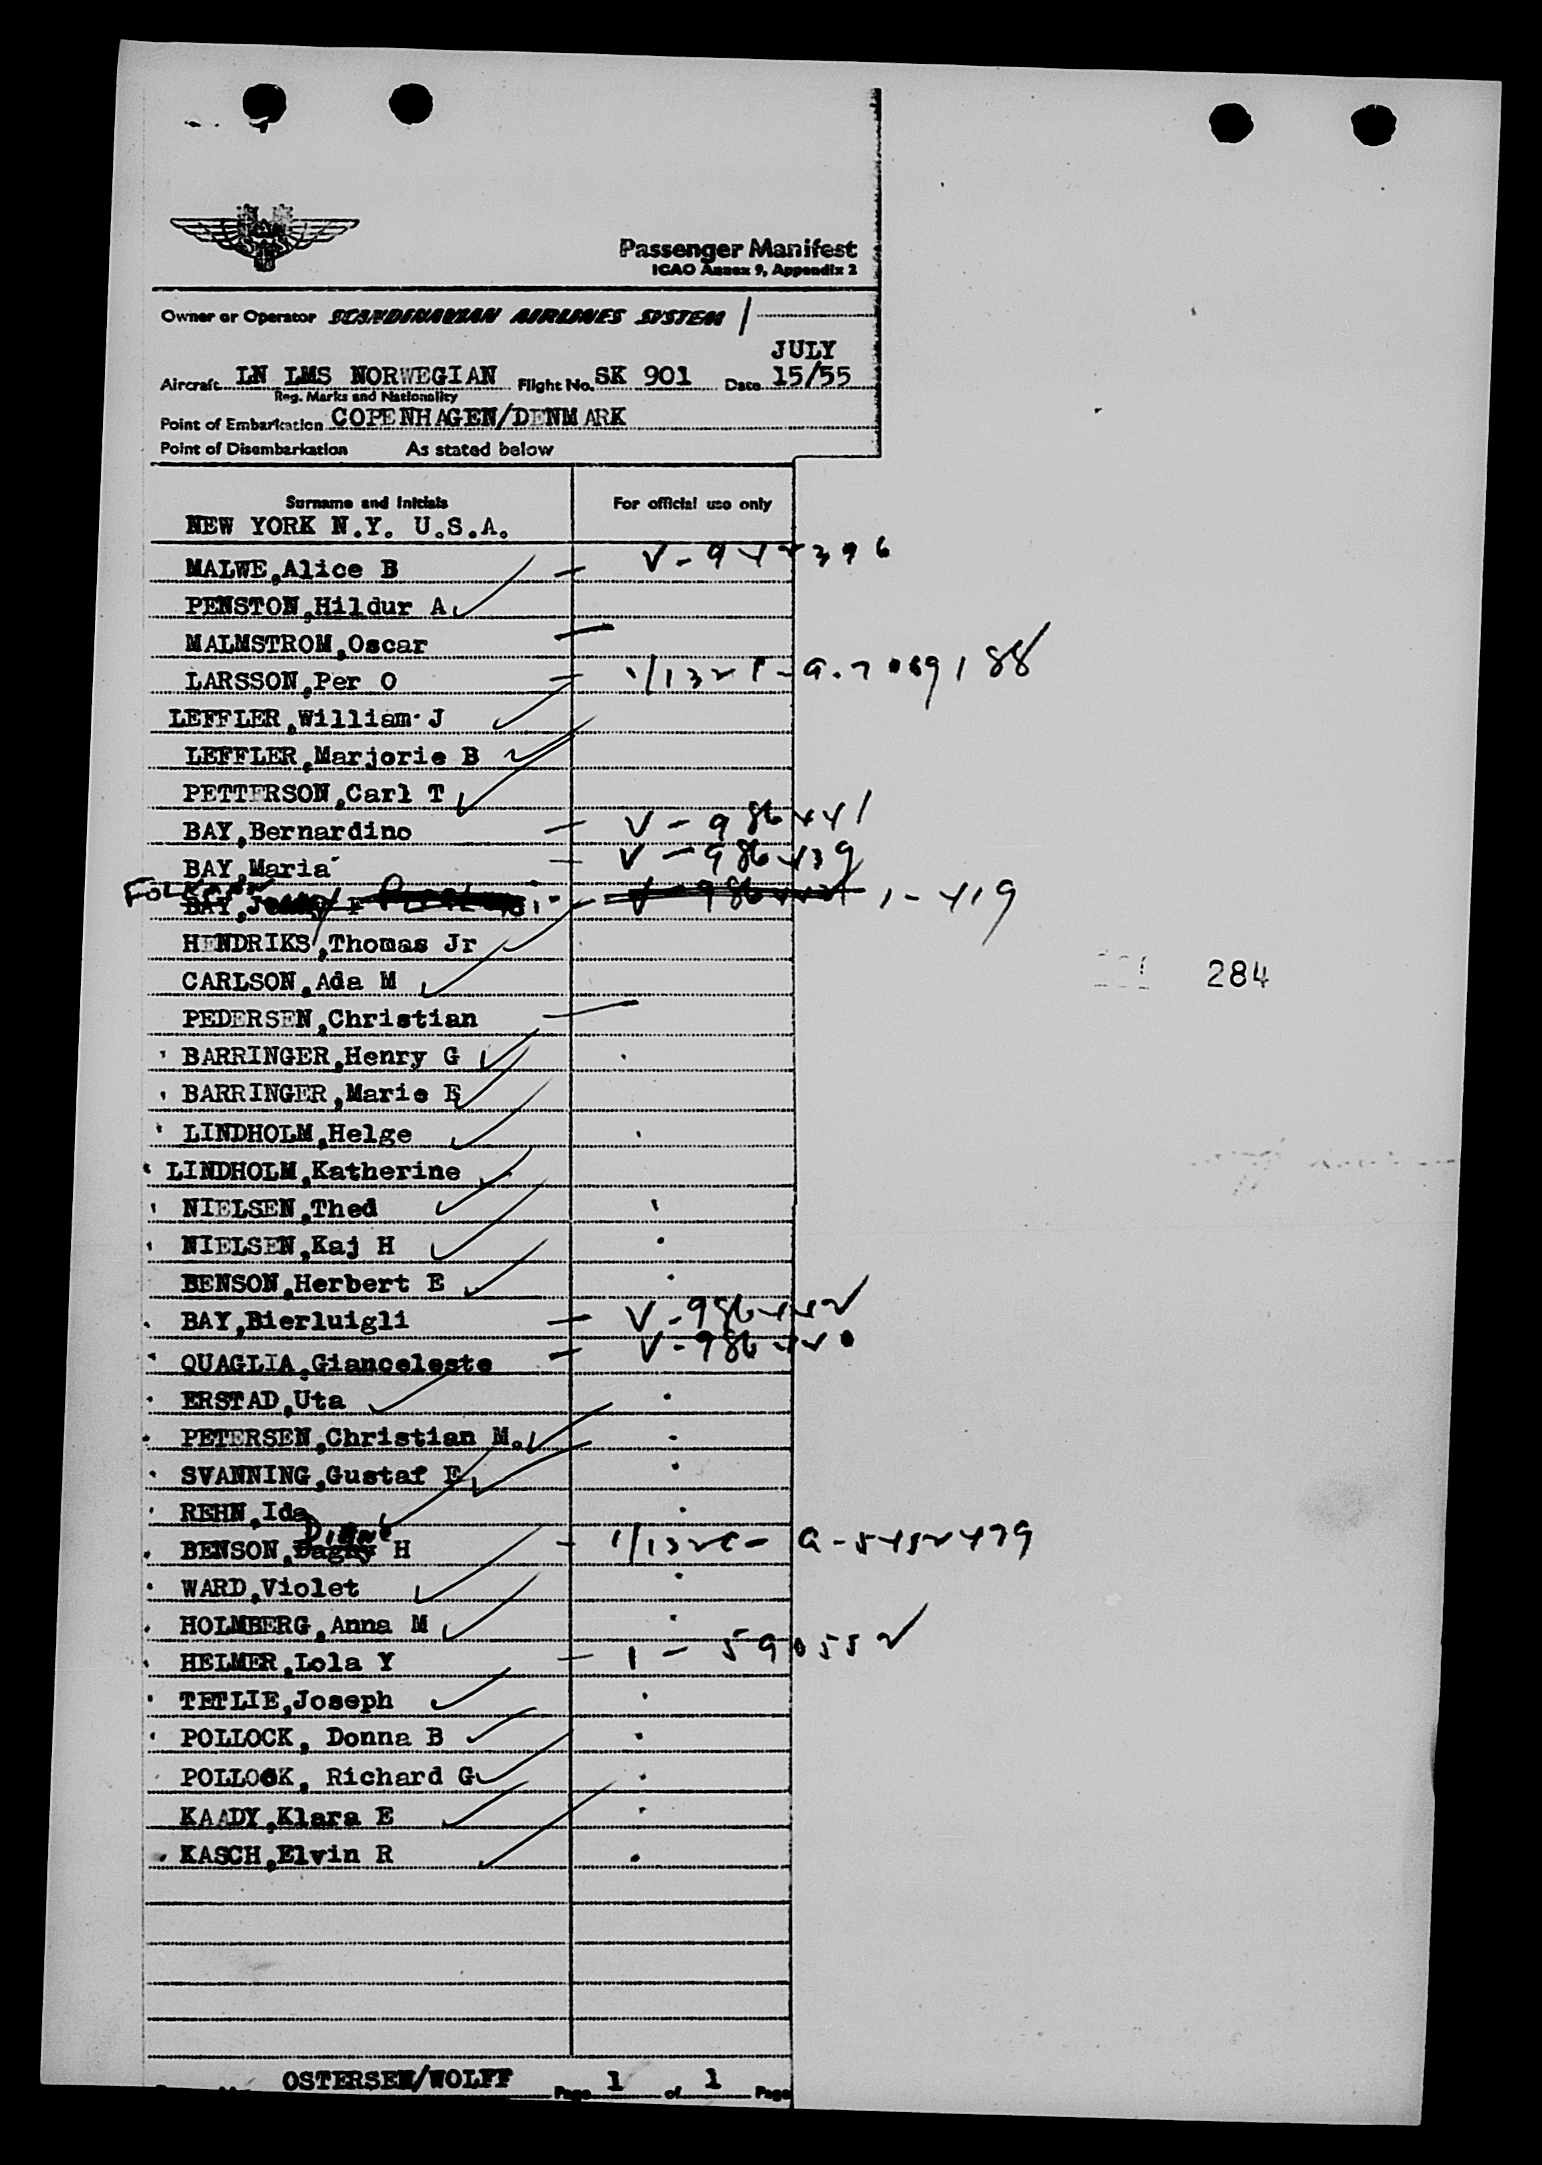 Passenger Manifest
ICAO Annex 9, Appendix 2
Owner or Operator SCANDINAVIAN AIRLINES SYSTEM /
JULY
Aircraft LN LMS NORWEGIAN Flight No. SK 901 Date 15/55
Reg. Marks and Nationality
Point of Embarkation COPENHAGEN/DENMARK
Point of Disembarkation As stated below
Surname and Initials For official use only
NEW YORK N.Y. U.S.A.
MALWE,Alice B V-944396
PENSTON,Hildur A
MALMSTROM,Oscar
LARSSON,Per O
LEFFLER,William J
LEFFLER,Marjorie B
PETTERSON,Carl T
BAY,Bernardino V-986441
BAY,Maria V-986439
BAY, 1-419
HENDRIKS,Thomas Jr
CARLSON,Ada M
284
PEDERSEN,Christian
BARRINGER,Henry G
BARRINGER,Marie E
LINDHOLM,Helge
LINDHOLM,Katherine
NIELSEN,Thed
NIELSEN,Kaj H
BENSON,Herbert E
BAY,Bierluigli V-986442
QUAGLIA,Gianceleste V-986440
ERSTAD,Uta
PETERSEN,Christian M.
SVANNING,Gustaf E
REHN,Ida
Diane
BENSON,Dagny H A-5452479
WARD,Violet
HOLMBERG,Anna M
HELMER,Lola Y 1-590552
TETLIE,Joseph
POLLOCK, Donna B
POLLOCK, Richard G
KAADY,Klara E
KASCH,Elvin R
OSTERSEN/WOLFF Page 1 of 1 Page